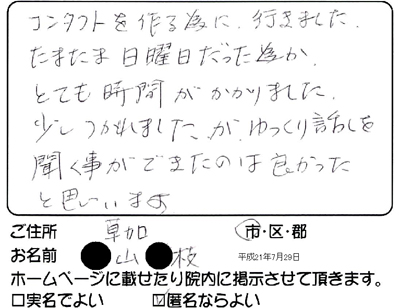 コンタクトを作る為に、行きました。
たまたま日曜日だった為か、
とても時間がかかりました。
少しつかれましたが、ゆっくり話しを
聞く事ができたのは良かった
と思います
ご住所 草加 市・区・郡
お名前 ●山●枝 平成21年7月29日
ホームページに載せたり院内に掲示させて頂きます。
□実名でよい ☑匿名ならよい